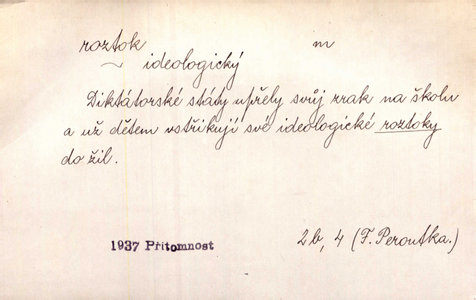 roztok m
~ ideologický
Diktátorské státy upřely svůj zrak na školu
a už dětem vstřikují své ideologické roztoky
do žil.
1937 Přítomnost 2b, 4 (F. Peroutka.)